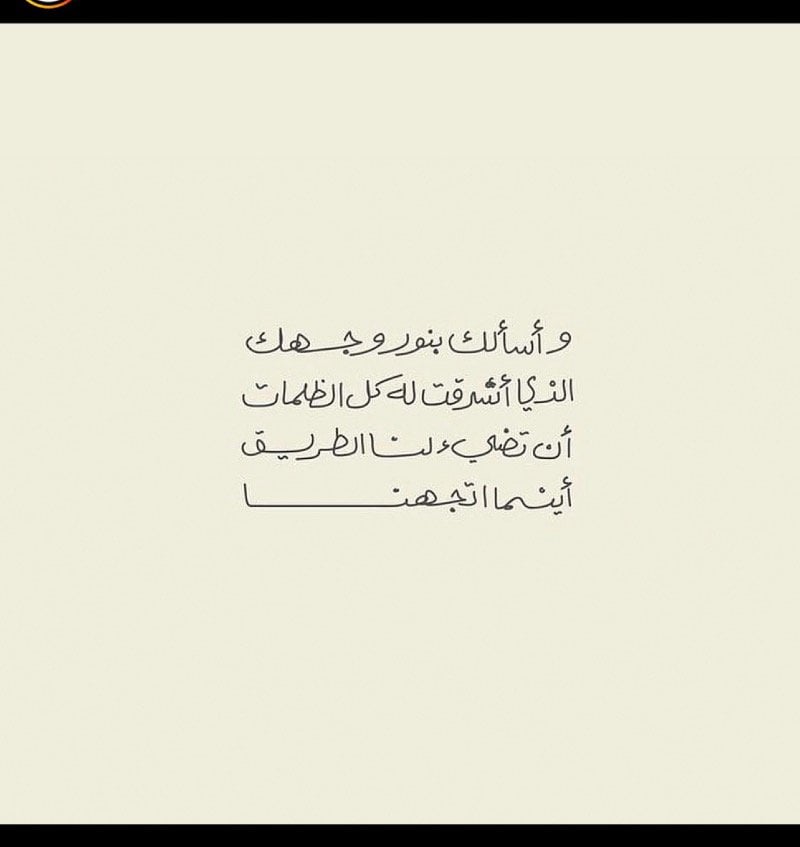 وأسألك بنور وجهك
الذي أشرقت له كل الظلمات
أن تضيء لنا الطريق
أينما اتجهنــــــــا